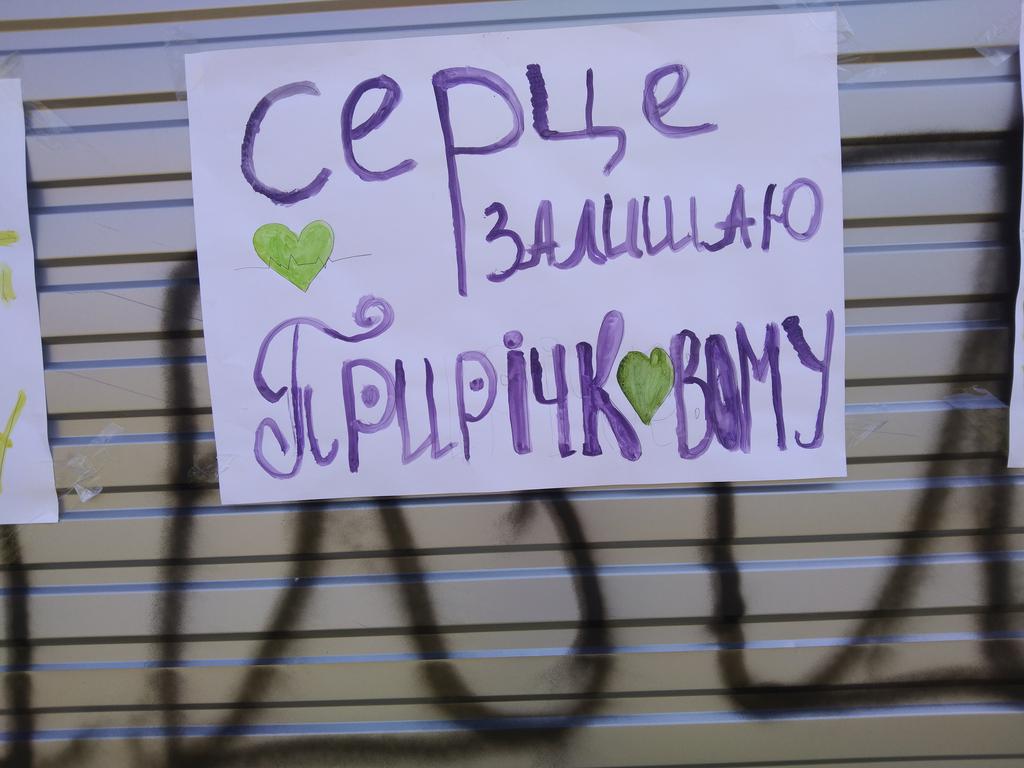 серце
залишаю
Прирічковому